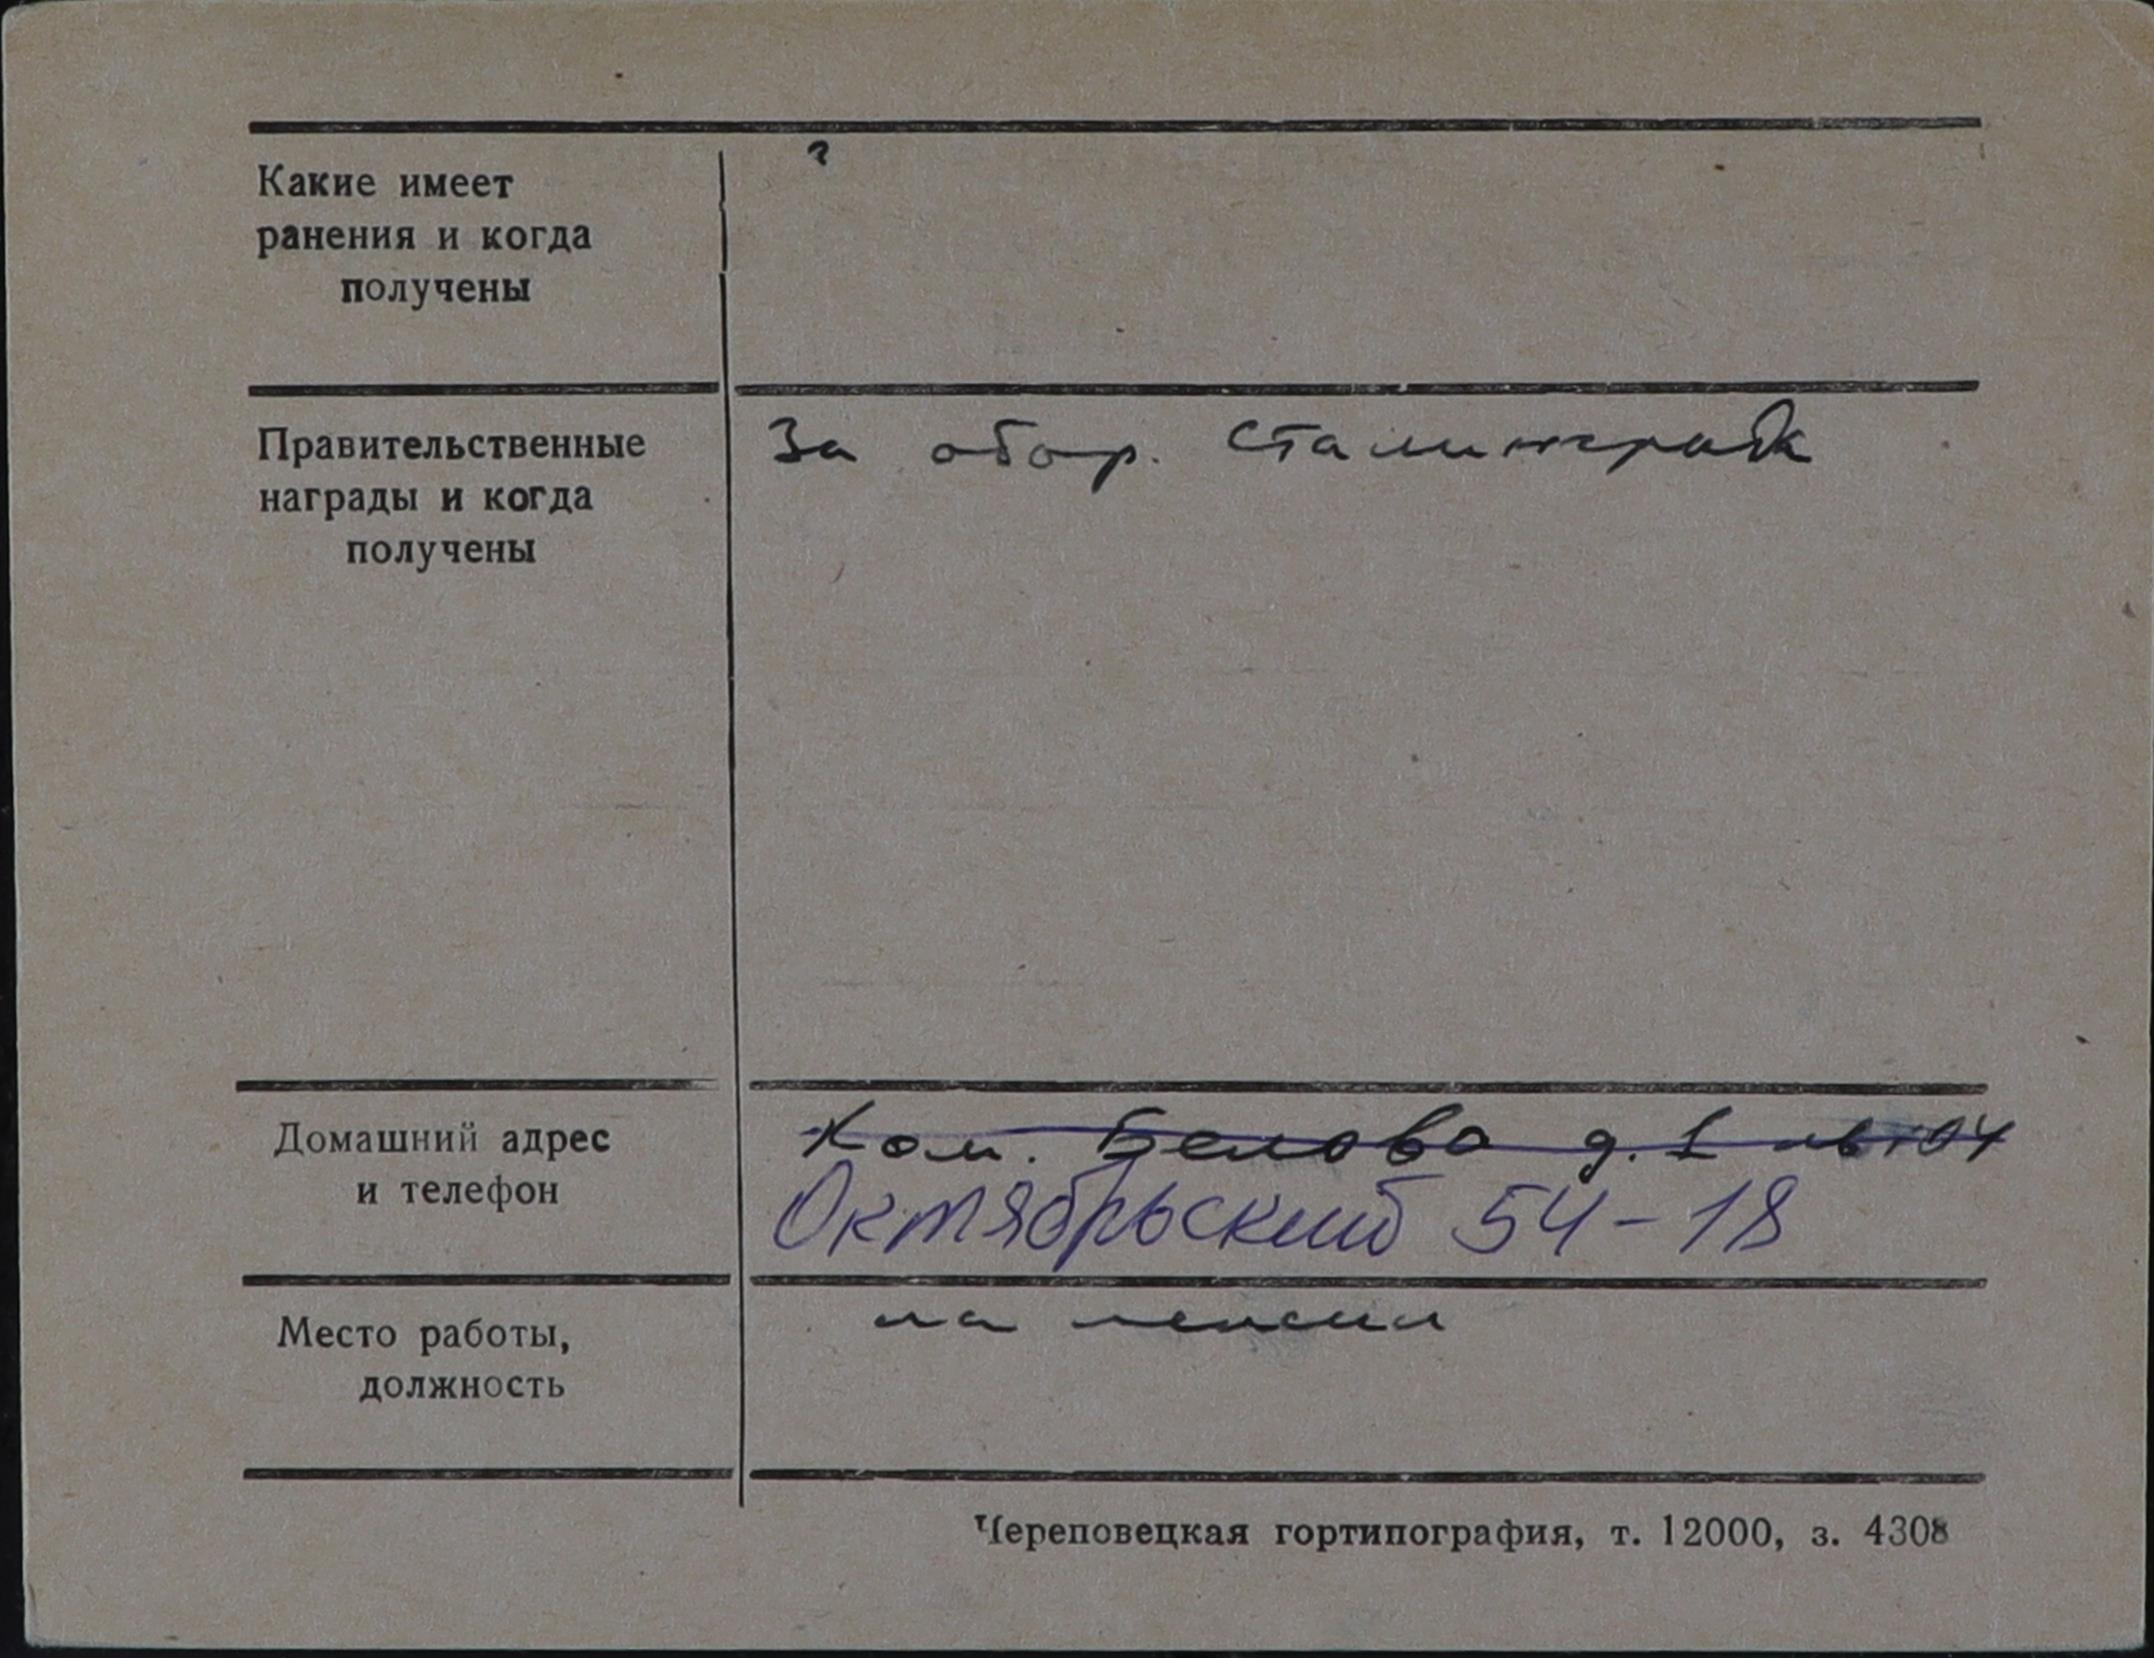 ?
Какие имеет
ранения и когда
получены
За обор. Сталинграда
Правительственные
награды и когда
получены
Ком. Белова д. 1 кв 104
Домашний адрес
и телефон
Октябрьский 54-18
на пенсии
Место работы,
должность
Череповецкая гортипография, т. 12000, з. 4308